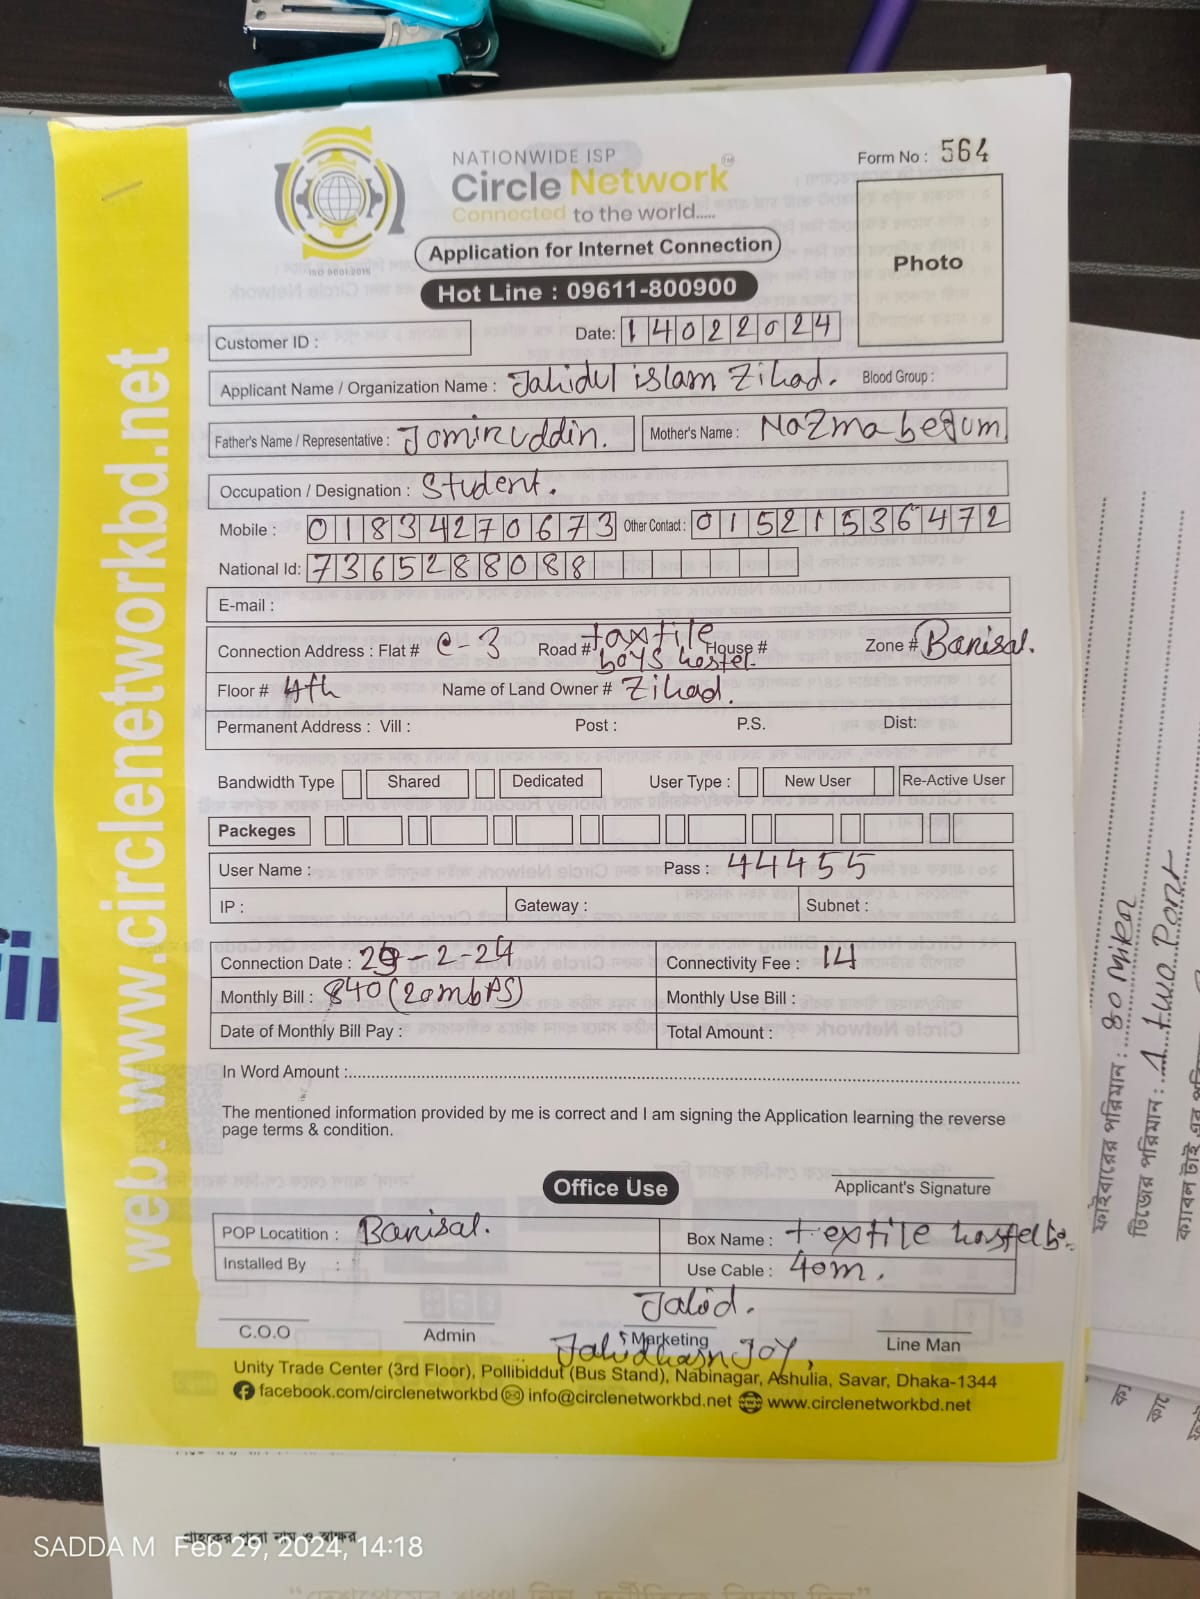 NATIONWIDE ISP
Circle Network™
Connected to the world.....
ISO 9001:2015
Form No : 564
Application for Internet Connection
Hot Line : 09611-800900
Photo
Customer ID :
Date: 14022024
Applicant Name / Organization Name : Jahidul islam Zihad. Blood Group :
Father's Name / Representative : Jomiruddin. Mother's Name : Nazma begum
Occupation / Designation : Student.
Mobile : 01834270673 Other Contact : 01521536472
National Id: 7365288088
E-mail :
Connection Address : Flat # C-3 Road # taxtile boys hostel. House # Zone # Barisal.
Floor # 4th Name of Land Owner # Zihad.
Permanent Address : Vill : Post : P.S. Dist:
Bandwidth Type Shared Dedicated User Type : New User Re-Active User
Packeges
User Name : Pass : 44455
IP : Gateway : Subnet :
Connection Date : 29-2-24 Connectivity Fee : 14
Monthly Bill : 840 (20mbps) Monthly Use Bill :
Date of Monthly Bill Pay : Total Amount :
In Word Amount :
The mentioned information provided by me is correct and I am signing the Application learning the reverse
page terms & condition.
Office Use
Applicant's Signature
POP Locatition : Barisal. Box Name : textile hostel
Installed By : Use Cable : 40m.
Jahid.
C.O.O Admin Marketing Line Man
JOY
Unity Trade Center (3rd Floor), Pollibiddut (Bus Stand), Nabinagar, Ashulia, Savar, Dhaka-1344
facebook.com/circlenetworkbd info@circlenetworkbd.net www.circlenetworkbd.net
web - www.circlenetworkbd.net
ফাইবারের পরিমান : 80 Miter
টিজের পরিমান : 1 two Port
গ্রাহকের পুরো নাম ও স্বাক্ষর
SADDA M Feb 29, 2024, 14:18